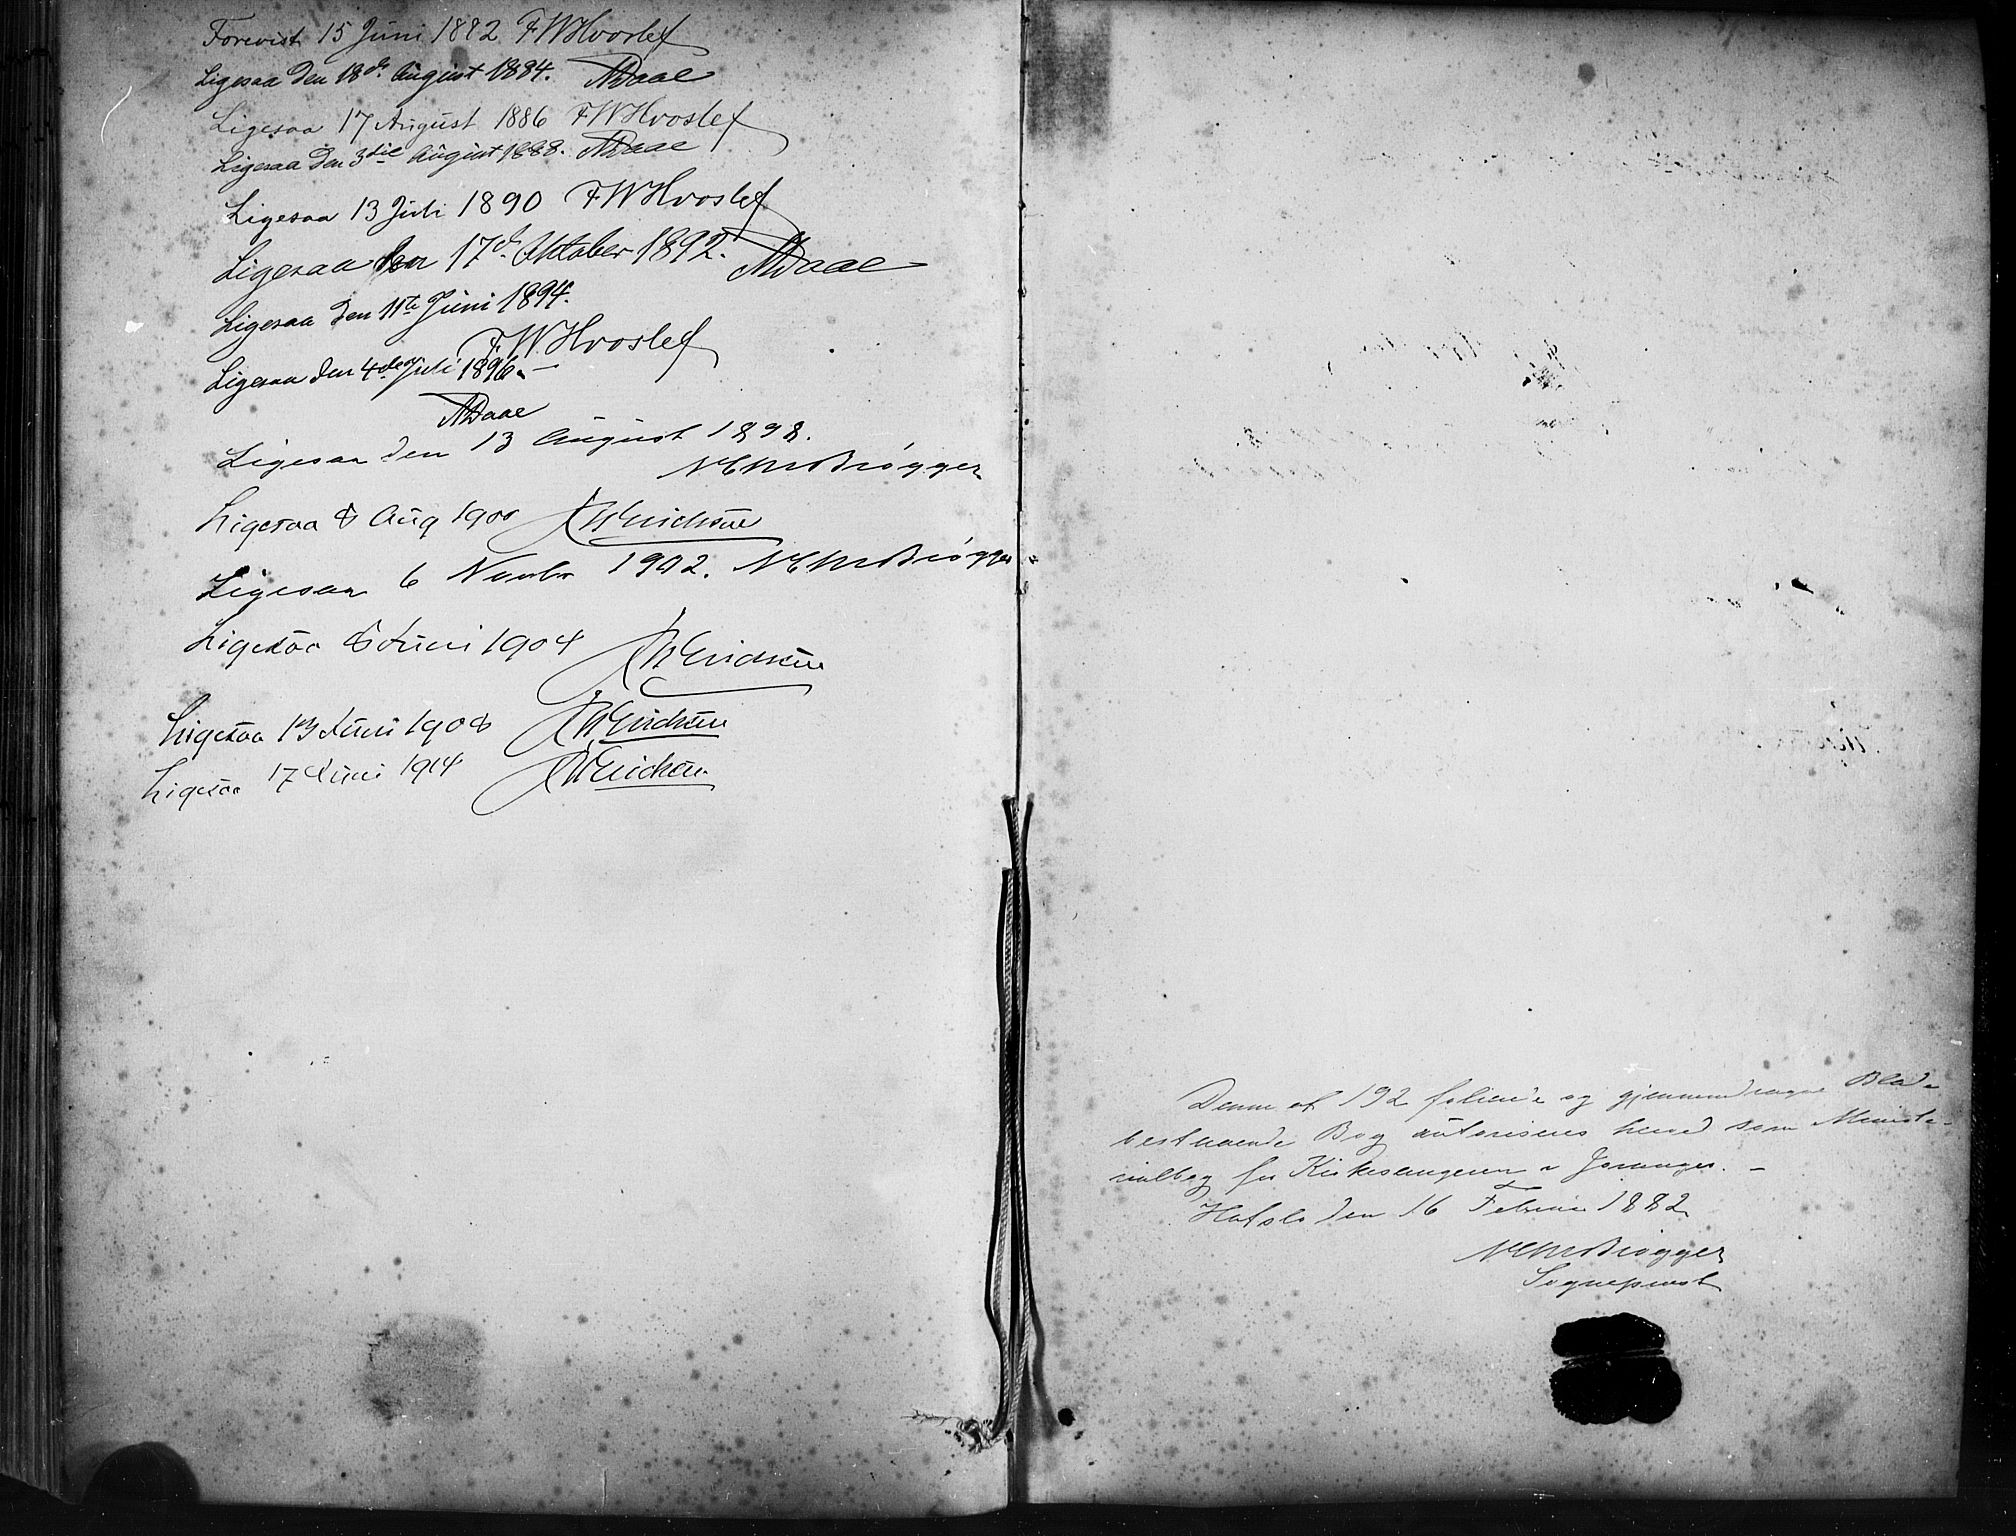 Forevist 15 Juni 1882 FWHvoslef
Ligesaa den 18de August 1884. ADaae
Ligesaa 17 August 1886 FWHvoslef
Ligesaa den 3die August 1888. ADaae
Ligesaa 13 Juli 1890 FWHvoslef
Ligesaa den 17de Oktober 1892. ADaae
Ligesaa den 11te Juni 1894.
F.W.Hvoslef
Ligesaa den 4de Juli 1896.–
ADaae
Ligesaa den 13 August 1898.
NCMBrøgger
Ligesaa 8 Aug 1900 Erichsen
Ligesaa 6 Novbr 1902. NCMBrøgger
Ligesaa 8 Juni 1904 Erichsen
Ligesaa 13 Juni 1908 Erichsen
Ligesaa 17 Juni 1914 Erichsen
Denne af 192 folierede og gjennemdragne Blade
bestaaende Bog autoriseres herved som Ministe-
rialbog for Kirkesangeren i Joranger. –
Hafslo den 16 Februar 1882
NCMBrøgger
Sogneprest